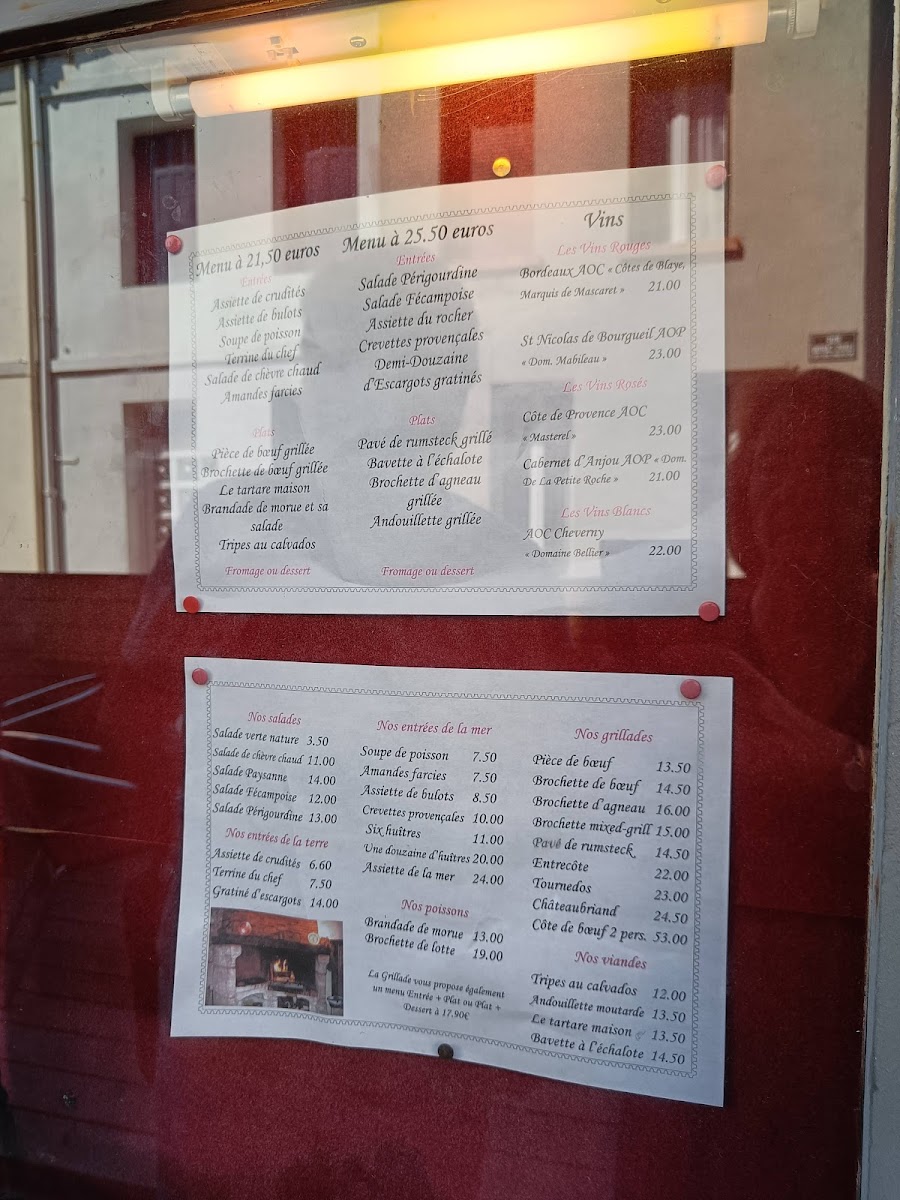 Menu à 21,50 euros
Entrées
Assiette de crudités
Assiette de bulots
Soupe de poisson
Terrine du chef
Salade de chèvre chaud
Amandes farcies
Plats
Pièce de bœuf grillée
Brochette de bœuf grillée
Le tartare maison
Brandade de morue et sa
salade
Tripes au calvados
Fromage ou dessert
Menu à 25.50 euros
Entrées
Salade Périgourdine
Salade Fécampoise
Assiette du rocher
Crevettes provençales
Demi-Douzaine
d'Escargots gratinés
Plats
Pavé de rumsteck grillé
Bavette à l'échalote
Brochette d'agneau
grillée
Andouillette grillée
Fromage ou dessert
Vins
Les Vins Rouges
Bordeaux AOC « Côtes de Blaye,
Marquis de Mascaret » 21.00
St Nicolas de Bourgueil AOP
« Dom. Mabileau » 23.00
Les Vins Rosés
Côte de Provence AOC
« Masterel » 23.00
Cabernet d'Anjou AOP « Dom.
De La Petite Roche » 21.00
Les Vins Blancs
AOC Cheverny
« Domaine Bellier » 22.00
Nos salades
Salade verte nature 3.50
Salade de chèvre chaud 11.00
Salade Paysanne 14.00
Salade Fécampoise 12.00
Salade Périgourdine 13.00
Nos entrées de la terre
Assiette de crudités 6.60
Terrine du chef 7.50
Gratiné d'escargots 14.00
Nos entrées de la mer
Soupe de poisson 7.50
Amandes farcies 7.50
Assiette de bulots 8.50
Crevettes provençales 10.00
Six huîtres 11.00
Une douzaine d'huîtres 20.00
Assiette de la mer 24.00
Nos poissons
Brandade de morue 13.00
Brochette de lotte 19.00
La Grillade vous propose également
un menu Entrée + Plat ou Plat +
Dessert à 17.90€
Nos grillades
Pièce de bœuf 13.50
Brochette de bœuf 14.50
Brochette d'agneau 16.00
Brochette mixed-grill 15.00
Pavé de rumsteck 14.50
Entrecôte 22.00
Tournedos 23.00
Châteaubriand 24.50
Côte de bœuf 2 pers. 53.00
Nos viandes
Tripes au calvados 12.00
Andouillette moutarde 13.50
Le tartare maison 13.50
Bavette à l'échalote 14.50